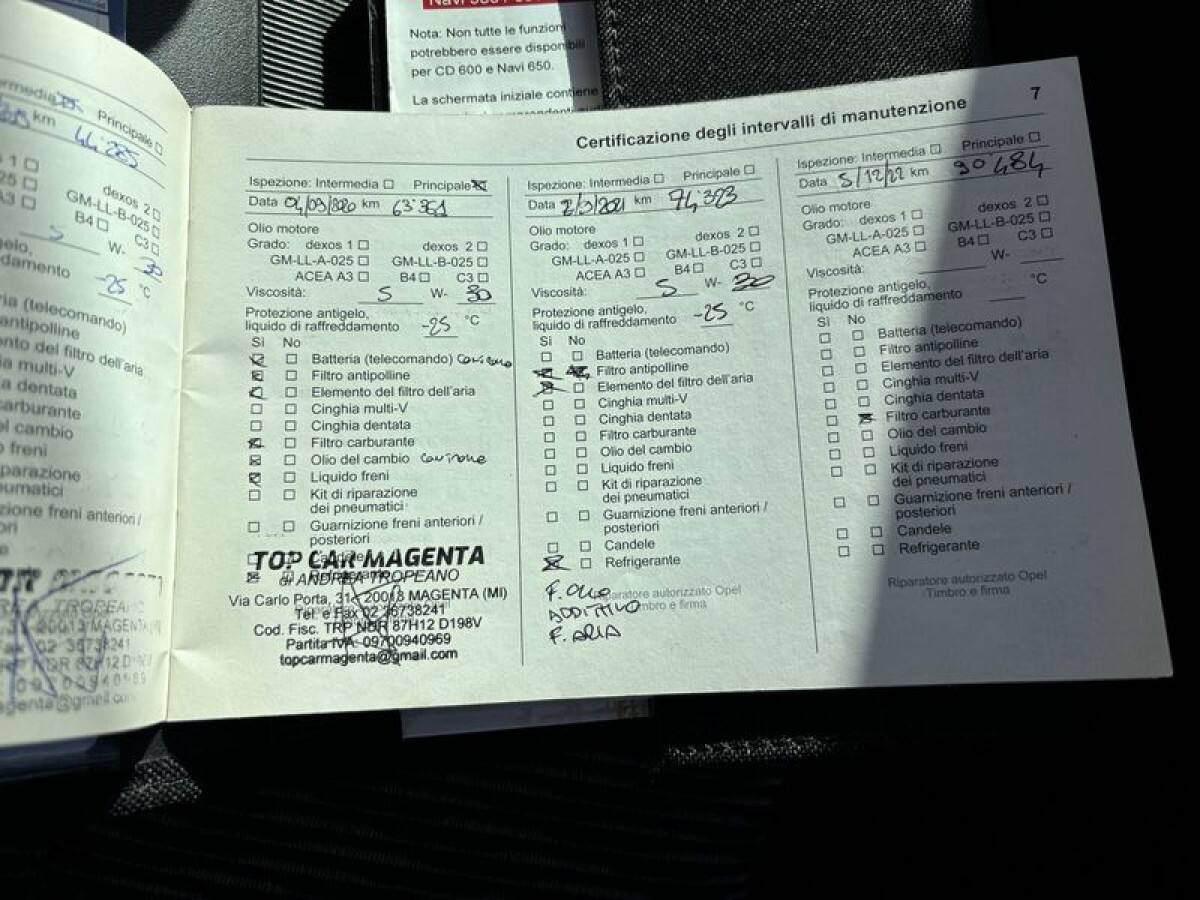 Nota: Non tutte le funzioni
potrebbero essere disponibili
per CD 600 e Navi 650.
La schermata iniziale contiene
Principale
km 44'285
dexos 2
GM-LL-B-025
B4 C3
W- 30
-25 °C
(telecomando)
antipolline
del filtro dell'aria
multi-V
dentata
carburante
del cambio
freni
riparazione
freni anteriori /
7
Certificazione degli intervalli di manutenzione
Ispezione: Intermedia Principale
Data 04/09/2020 km 63'361
Olio motore
Grado: dexos 1 dexos 2
GM-LL-A-025 GM-LL-B-025
ACEA A3 B4 C3
Viscosità: 5 W- 30
Protezione antigelo,
liquido di raffreddamento -25 °C
Sì No
Batteria (telecomando)
Filtro antipolline
Elemento del filtro dell'aria
Cinghia multi-V
Cinghia dentata
Filtro carburante
Olio del cambio
Liquido freni
Kit di riparazione
dei pneumatici
Guarnizione freni anteriori /
posteriori
Candele
TOP CAR MAGENTA
di ANDREA TROPEANO
Via Carlo Porta, 31 - 20013 MAGENTA (MI)
Tel. e Fax 02 36738241
Cod. Fisc. TRP NDR 87H12 D198V
Partita IVA 09700940969
topcarmagenta@gmail.com
Ispezione: Intermedia Principale
Data 2/9/2021 km 74'323
Olio motore
Grado: dexos 1 dexos 2
GM-LL-A-025 GM-LL-B-025
ACEA A3 B4 C3
Viscosità: 5 W- 30
Protezione antigelo,
liquido di raffreddamento -25 °C
Sì No
Batteria (telecomando)
Filtro antipolline
Elemento del filtro dell'aria
Cinghia multi-V
Cinghia dentata
Filtro carburante
Olio del cambio
Liquido freni
Kit di riparazione
dei pneumatici
Guarnizione freni anteriori /
posteriori
Candele
Refrigerante
F. OLIO
ADDITIVO
F. ARIA
autorizzato Opel
Timbro e firma
Ispezione: Intermedia Principale
Data 5/12/22 km 90484
Olio motore
Grado: dexos 1 dexos 2
GM-LL-A-025 GM-LL-B-025
ACEA A3 B4 C3
Viscosità: W-
Protezione antigelo,
liquido di raffreddamento °C
Sì No
Batteria (telecomando)
Filtro antipolline
Elemento del filtro dell'aria
Cinghia multi-V
Cinghia dentata
Filtro carburante
Olio del cambio
Liquido freni
Kit di riparazione
dei pneumatici
Guarnizione freni anteriori /
posteriori
Candele
Refrigerante
Riparatore autorizzato Opel
Timbro e firma